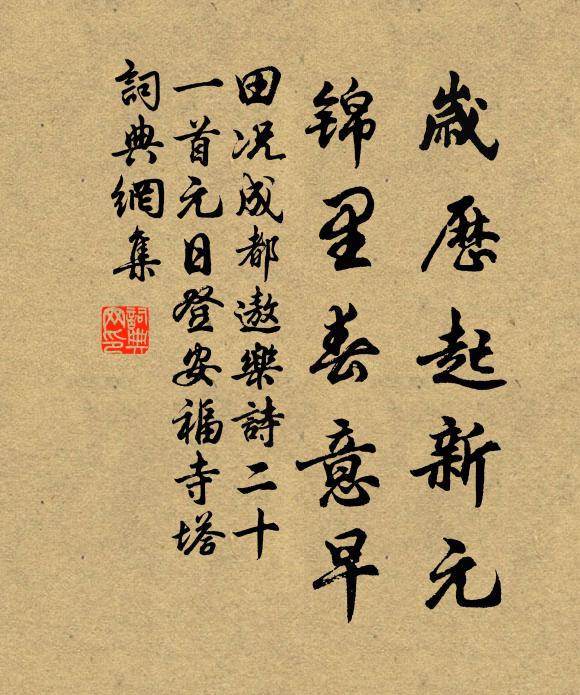 歲歷起新元
錦里春意早
田況成都遨樂詩二十
一首元日登安福寺塔
詞典網集
詞典网印